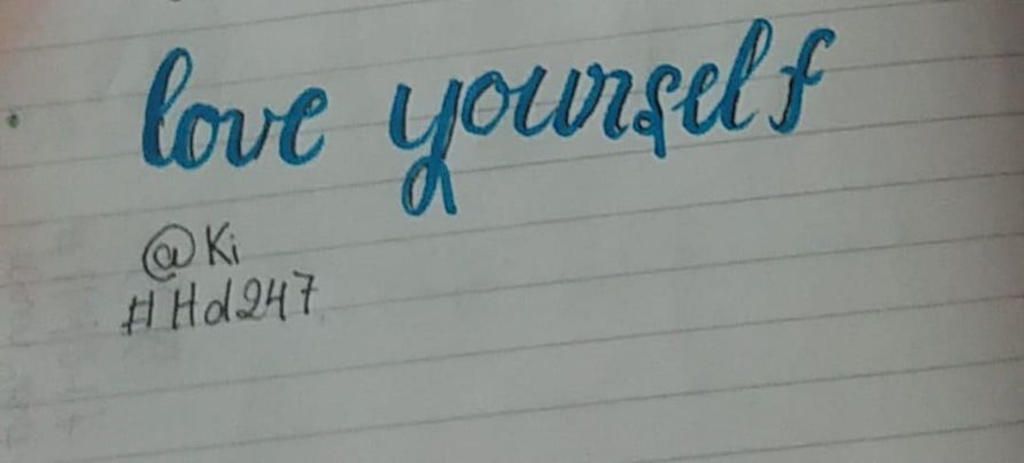 love yourself
@Ki
#Hd247